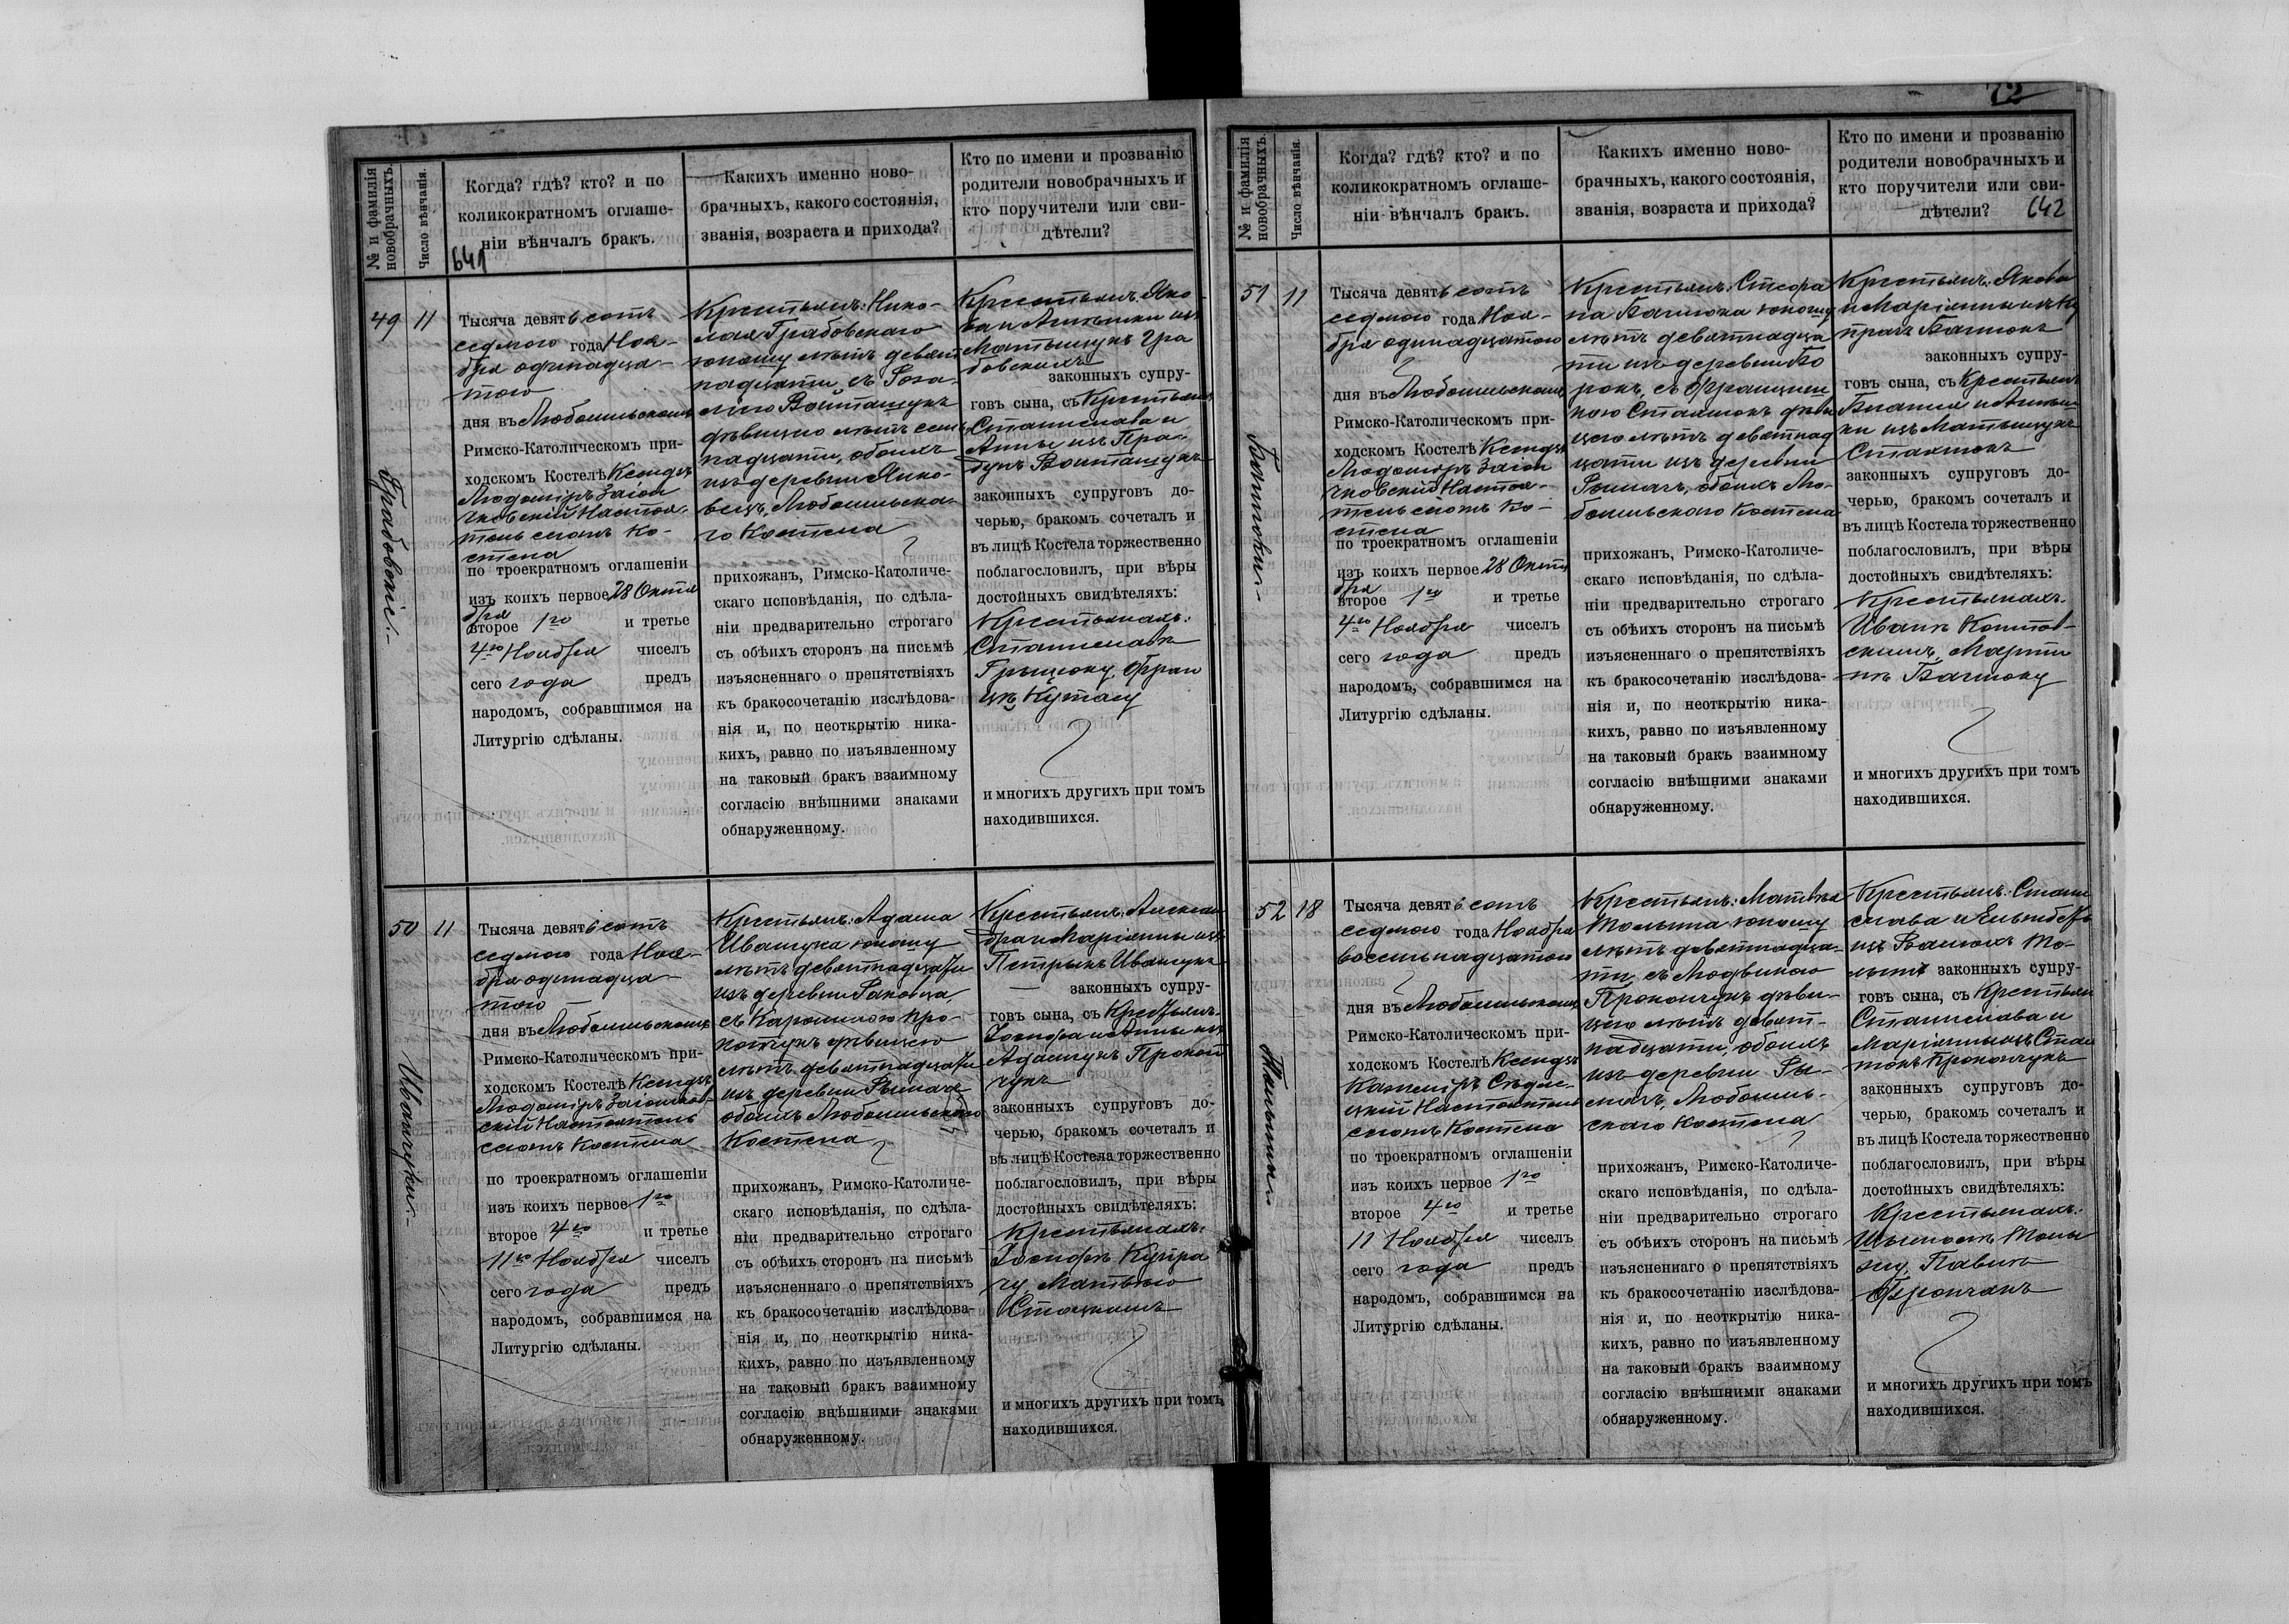 № и фамилія новобрачныхъ.
Число вѣнчанія.
Когда? гдѣ? кто? и по
коликократномъ оглаше-
ніи вѣнчалъ бракъ.
641
Какихъ именно ново-
брачныхъ, какого состоянія,
званія, возраста и прихода?
Кто по имени и прозванію
родители новобрачныхъ и
кто поручители или сви-
дѣтели?
49
11
Грабовскіе
Тысяча девятьсотъ
седьмого года Ноя-
бря одинадца-
того
дня въ Любомльскомъ
Римско-Католическомъ при-
ходскомъ Костелѣ Ксендзъ
Людомиръ
Настоя-
тель сего Ко-
стела
по троекратномъ оглашеніи
изъ коихъ первое 28 Октя
бря
второе 1го и третье
4го Ноября чиселъ
сего года предъ
народомъ, собравшимся на
Литургію сдѣланы.
Крестьянъ: Нико-
лая Грабовскаго
юношу лѣтъ девят
надцати, съ Роза-
ліею Войташукъ
дѣвицею лѣтъ сем
надцати, обоихъ
изъ деревни
Любомльска-
го Костела
прихожанъ, Римско-Католиче-
скаго исповѣданія, по сдѣла-
ніи предварительно строгаго
съ обѣихъ сторонъ на письмѣ
изъясненнаго о препятствіяхъ
къ бракосочетанію изслѣдова-
нія и, по неоткрытію ника-
кихъ, равно по изъявленному
на таковый бракъ взаимному
согласію внѣшними знаками
обнаруженному.
Крестьянъ Яко
ва и изъ
Матыщукъ Гра
бовскихъ
законныхъ супру-
говъ сына, съ Крестьян
Станислава и
Анны изъ
Войташукъ
законныхъ супруговъ до-
черью, бракомъ сочеталъ и
въ лицѣ Костела торжественно
поблагословилъ, при вѣры
достойныхъ свидѣтеляхъ:
Крестьянахъ:
Станиславѣ
Фран
цѣ
и многихъ другихъ при томъ
находившихся.
50
11
Иванчуки
Тысяча девятьсотъ
седьмого года Ноя-
бря одинадца-
того
дня въ Любомльскомъ
Римско-Католическомъ при-
ходскомъ Костелѣ Ксендзъ
Людомиръ
Настоятель
Костела
по троекратномъ оглашеніи
изъ коихъ первое 1го
второе 4го и третье
11го Ноября чиселъ
сего года предъ
народомъ, собравшимся на
Литургію сдѣланы.
Крестьянъ: Адама
Иванчука юношу
лѣтъ девятнадцати
изъ деревни Раковца,
съ Каролиною Про-
копчукъ дѣвицею
лѣтъ девятнадцати
изъ деревни Рымачъ
обоихъ Любомльского
Костела
прихожанъ, Римско-Католиче-
скаго исповѣданія, по сдѣла-
ніи предварительно строгаго
съ обѣихъ сторонъ на письмѣ
изъясненнаго о препятствіяхъ
къ бракосочетанію изслѣдова-
нія и, по неоткрытію ника-
кихъ, равно по изъявленному
на таковый бракъ взаимному
согласію внѣшними знаками
обнаруженному.
Крестьянъ: Алексан
дра и Маріанны изъ
Петрыкъ Иванчукъ
законныхъ супру-
говъ сына, съ Крестьянъ
Іосифа и Анны изъ
Адамчукъ Прокоп
чукъ
законныхъ супруговъ до-
черью, бракомъ сочеталъ и
въ лицѣ Костела торжественно
поблагословилъ, при вѣры
достойныхъ свидѣтеляхъ:
Крестьянахъ:
Іосифѣ
Матвѣю
и многихъ другихъ при томъ
находившихся.
72
№ и фамилія новобрачныхъ.
Число вѣнчанія.
Когда? гдѣ? кто? и по
коликократномъ оглаше-
ніи вѣнчалъ бракъ.
Какихъ именно ново-
брачныхъ, какого состоянія,
званія, возраста и прихода?
Кто по имени и прозванію
родители новобрачныхъ и
кто поручители или сви-
дѣтели? 642
51
11
Тысяча девятьсотъ
седьмого года Ноя-
бря одинадцатого
дня въ Любомльскомъ
Римско-Католическомъ при-
ходскомъ Костелѣ Ксендзъ
Людомиръ
Настоя-
тель Ко-
стела
по троекратномъ оглашеніи
изъ коихъ первое 28 Октя
бря
второе 1го и третье
4го Ноября чиселъ
сего года предъ
народомъ, собравшимся на
Литургію сдѣланы.
Крестьянъ: Стефа
на юношу
лѣтъ девятнадца
ти изъ деревни
съ Францишкою
дѣви
цею лѣтъ девятнад
цати изъ деревни
Рымачъ, обоихъ Лю-
бомльского Костела
прихожанъ, Римско-Католиче-
скаго исповѣданія, по сдѣла-
ніи предварительно строгаго
съ обѣихъ сторонъ на письмѣ
изъясненнаго о препятствіяхъ
къ бракосочетанію изслѣдова-
нія и, по неоткрытію ника-
кихъ, равно по изъявленному
на таковый бракъ взаимному
согласію внѣшними знаками
обнаруженному.
Крестьянъ: Якова
и Маріанны изъ
законныхъ супру-
говъ сына, съ Крестьянъ
изъ Матыщукъ
законныхъ супруговъ до-
черью, бракомъ сочеталъ и
въ лицѣ Костела торжественно
поблагословилъ, при вѣры
достойныхъ свидѣтеляхъ:
Крестьянахъ:
Иванѣ
Марти
нѣ
и многихъ другихъ при томъ
находившихся.
52
18
Тысяча девятьсотъ
седьмого года Ноября
восемнадцатого
дня въ Любомльскомъ
Римско-Католическомъ при-
ходскомъ Костелѣ Ксендзъ
Казимиръ
Настоятель
Костела
по троекратномъ оглашеніи
изъ коихъ первое 1го
второе 4го и третье
11 Ноября чиселъ
сего года предъ
народомъ, собравшимся на
Литургію сдѣланы.
Крестьянъ: Матвѣя
юношу
лѣтъ девятнадца-
ти, съ Людвикою
Прокопчукъ дѣви-
цею лѣтъ девят-
надцати, обоихъ
изъ деревни Ры-
мачъ, Любомль-
скаго Костела
прихожанъ, Римско-Католиче-
скаго исповѣданія, по сдѣла-
ніи предварительно строгаго
съ обѣихъ сторонъ на письмѣ
изъясненнаго о препятствіяхъ
къ бракосочетанію изслѣдова-
нія и, по неоткрытію ника-
кихъ, равно по изъявленному
на таковый бракъ взаимному
согласію внѣшними знаками
обнаруженному.
Крестьянъ: Стани
слава и
изъ
законныхъ супру-
говъ сына, съ Крестьян
Станислава и
Маріанны изъ
Прокопчукъ
законныхъ супруговъ до-
черью, бракомъ сочеталъ и
въ лицѣ Костела торжественно
поблагословилъ, при вѣры
достойныхъ свидѣтеляхъ:
Крестьянахъ:
Павлѣ
и многихъ другихъ при томъ
находившихся.